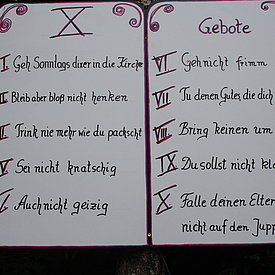 X
I. Geh Sonntags direr in die Kirche
II. Bleib aber bloß nicht henken
II. Trink nie mehr wie du packscht
V. Sei nicht knatschig
V. Auch nicht geizig
Gebote
VI. Geh nicht frimm
VII. Tu denen Gutes, die dich
VIII. Bring keinen um
IX Du sollst nicht kla
X Falle deinen Elter
nicht auf den Jupp